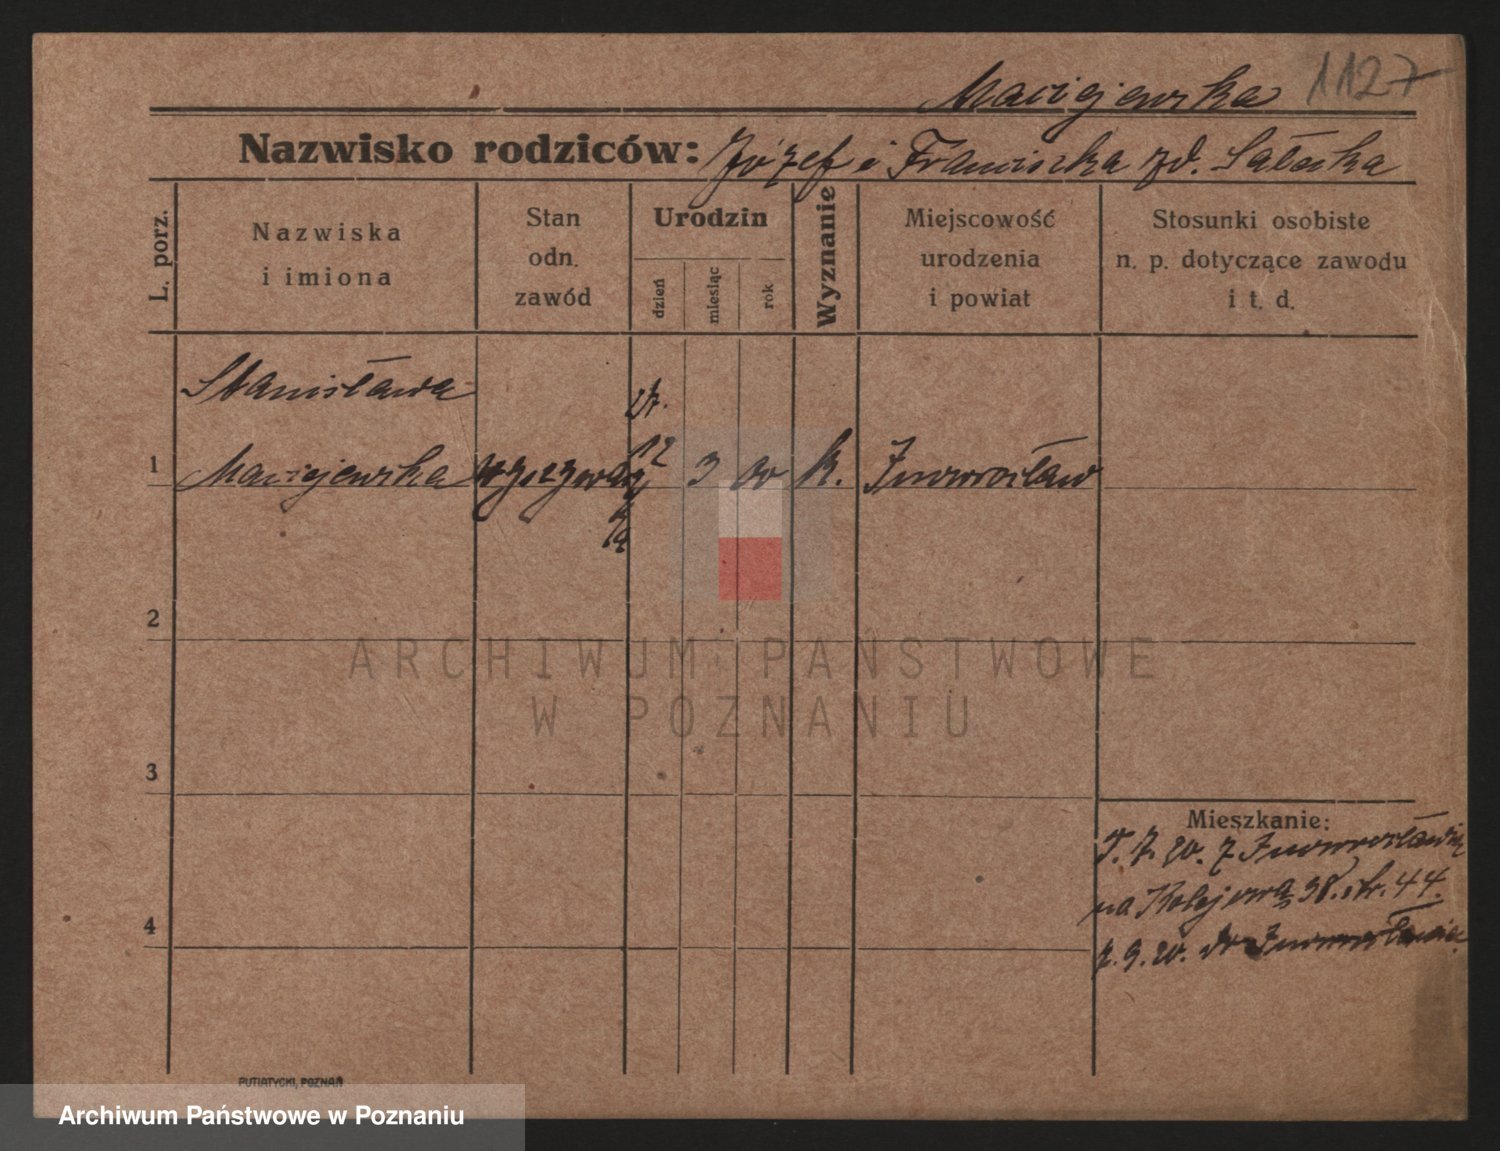 Maciejewska 1127
Nazwisko rodziców: Józef i Franciszka zd. Sałacka
L. porz.
Nazwiska
i imiona
Stan
odn.
zawód
Urodzin
dzień
miesiąc
rok
Wyznanie
Miejscowość
urodzenia
i powiat
Stosunki osobiste
n. p. dotyczące zawodu
i t. d.
Stanisława
1 Maciejewska 12 3 00 k. Inowrocław
2
3
4
Mieszkanie:
7. 20. z Inowrocławia
na Kolejową 38. tr. 44.
9. 20. do Inowrocławia.
PUTIATYCKI, POZNAŃ
ARCHIWUM PAŃSTWOWE
W POZNANIU
Archiwum Państwowe w Poznaniu